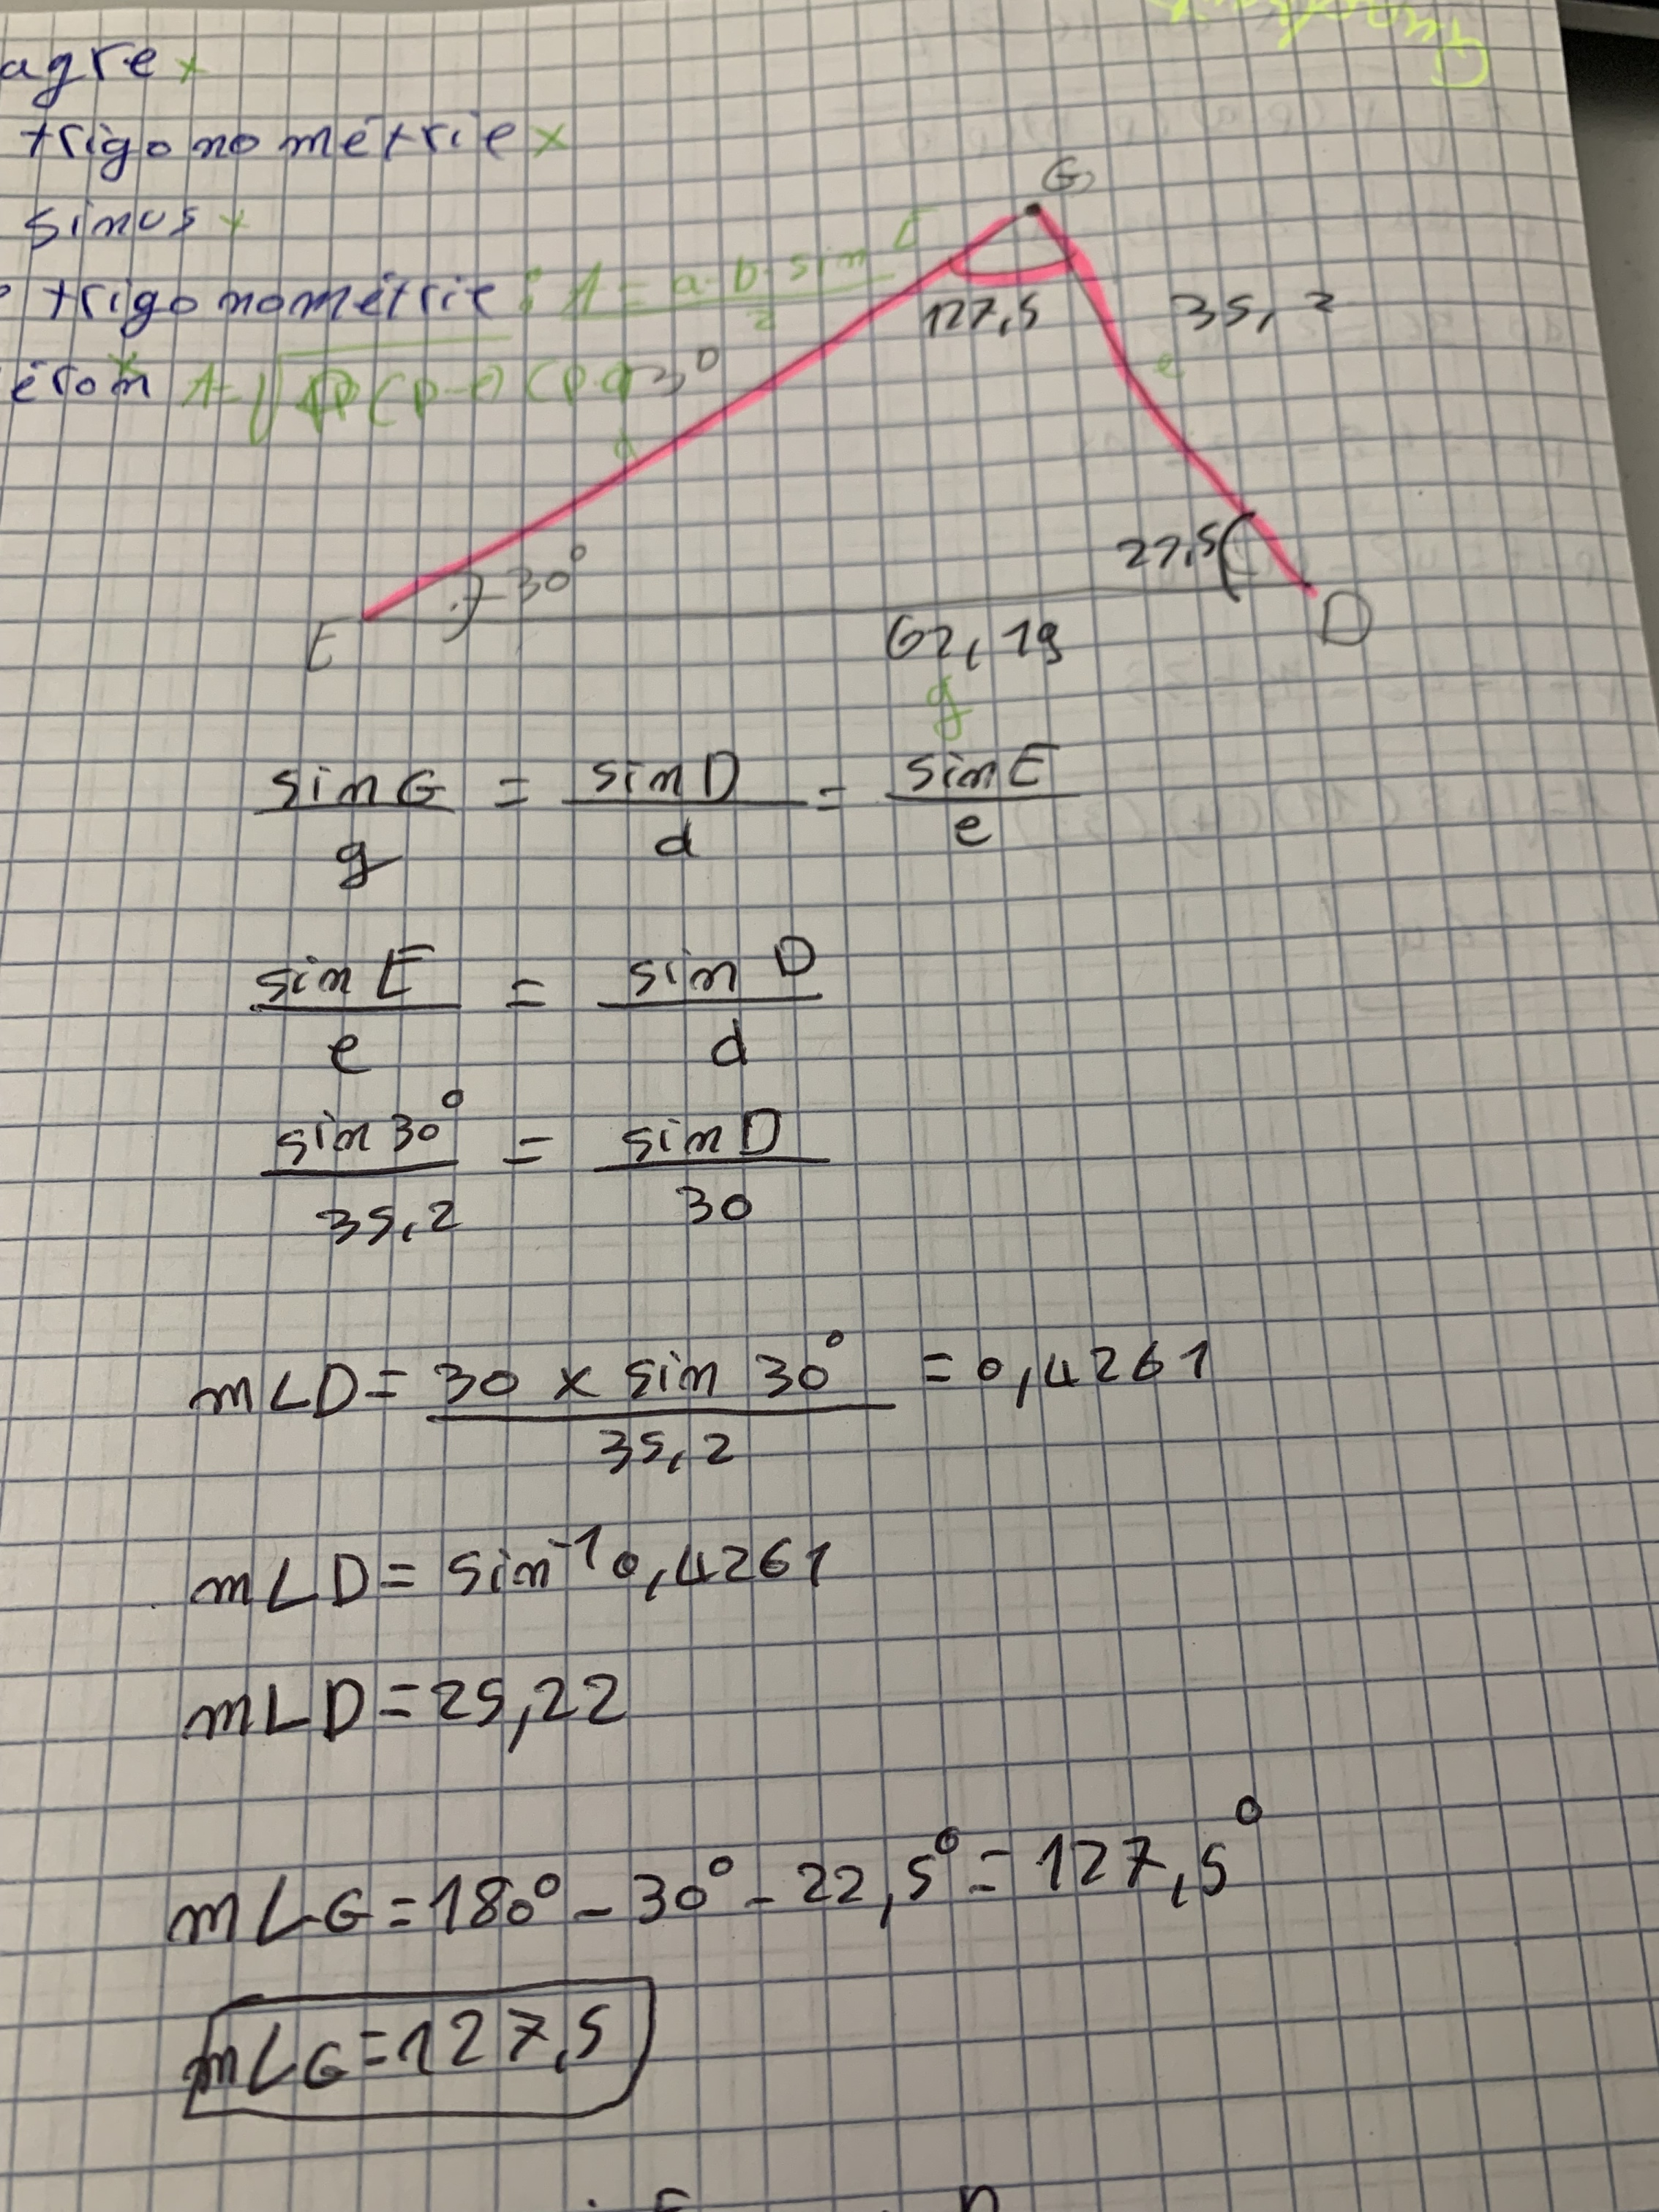 agre x
trigonométrie x
sinus x
G
trigonométrie : A = a·b·sin E / 2
127,5
35,2
érom x A = √p(p-e)(p-
30
e
d
30°
27,5
E
62,19
D
g
sin G / g = sin D / d = sin E / e
sin E / e = sin D / d
sin 30° / 35,2 = sin D / 30
m∠D = 30 x sin 30° / 35,2 = 0,4261
m∠D = sin⁻¹ 0,4261
m∠D = 25,22
m∠G = 180° - 30° - 22,5° = 127,5°
m∠G = 127,5